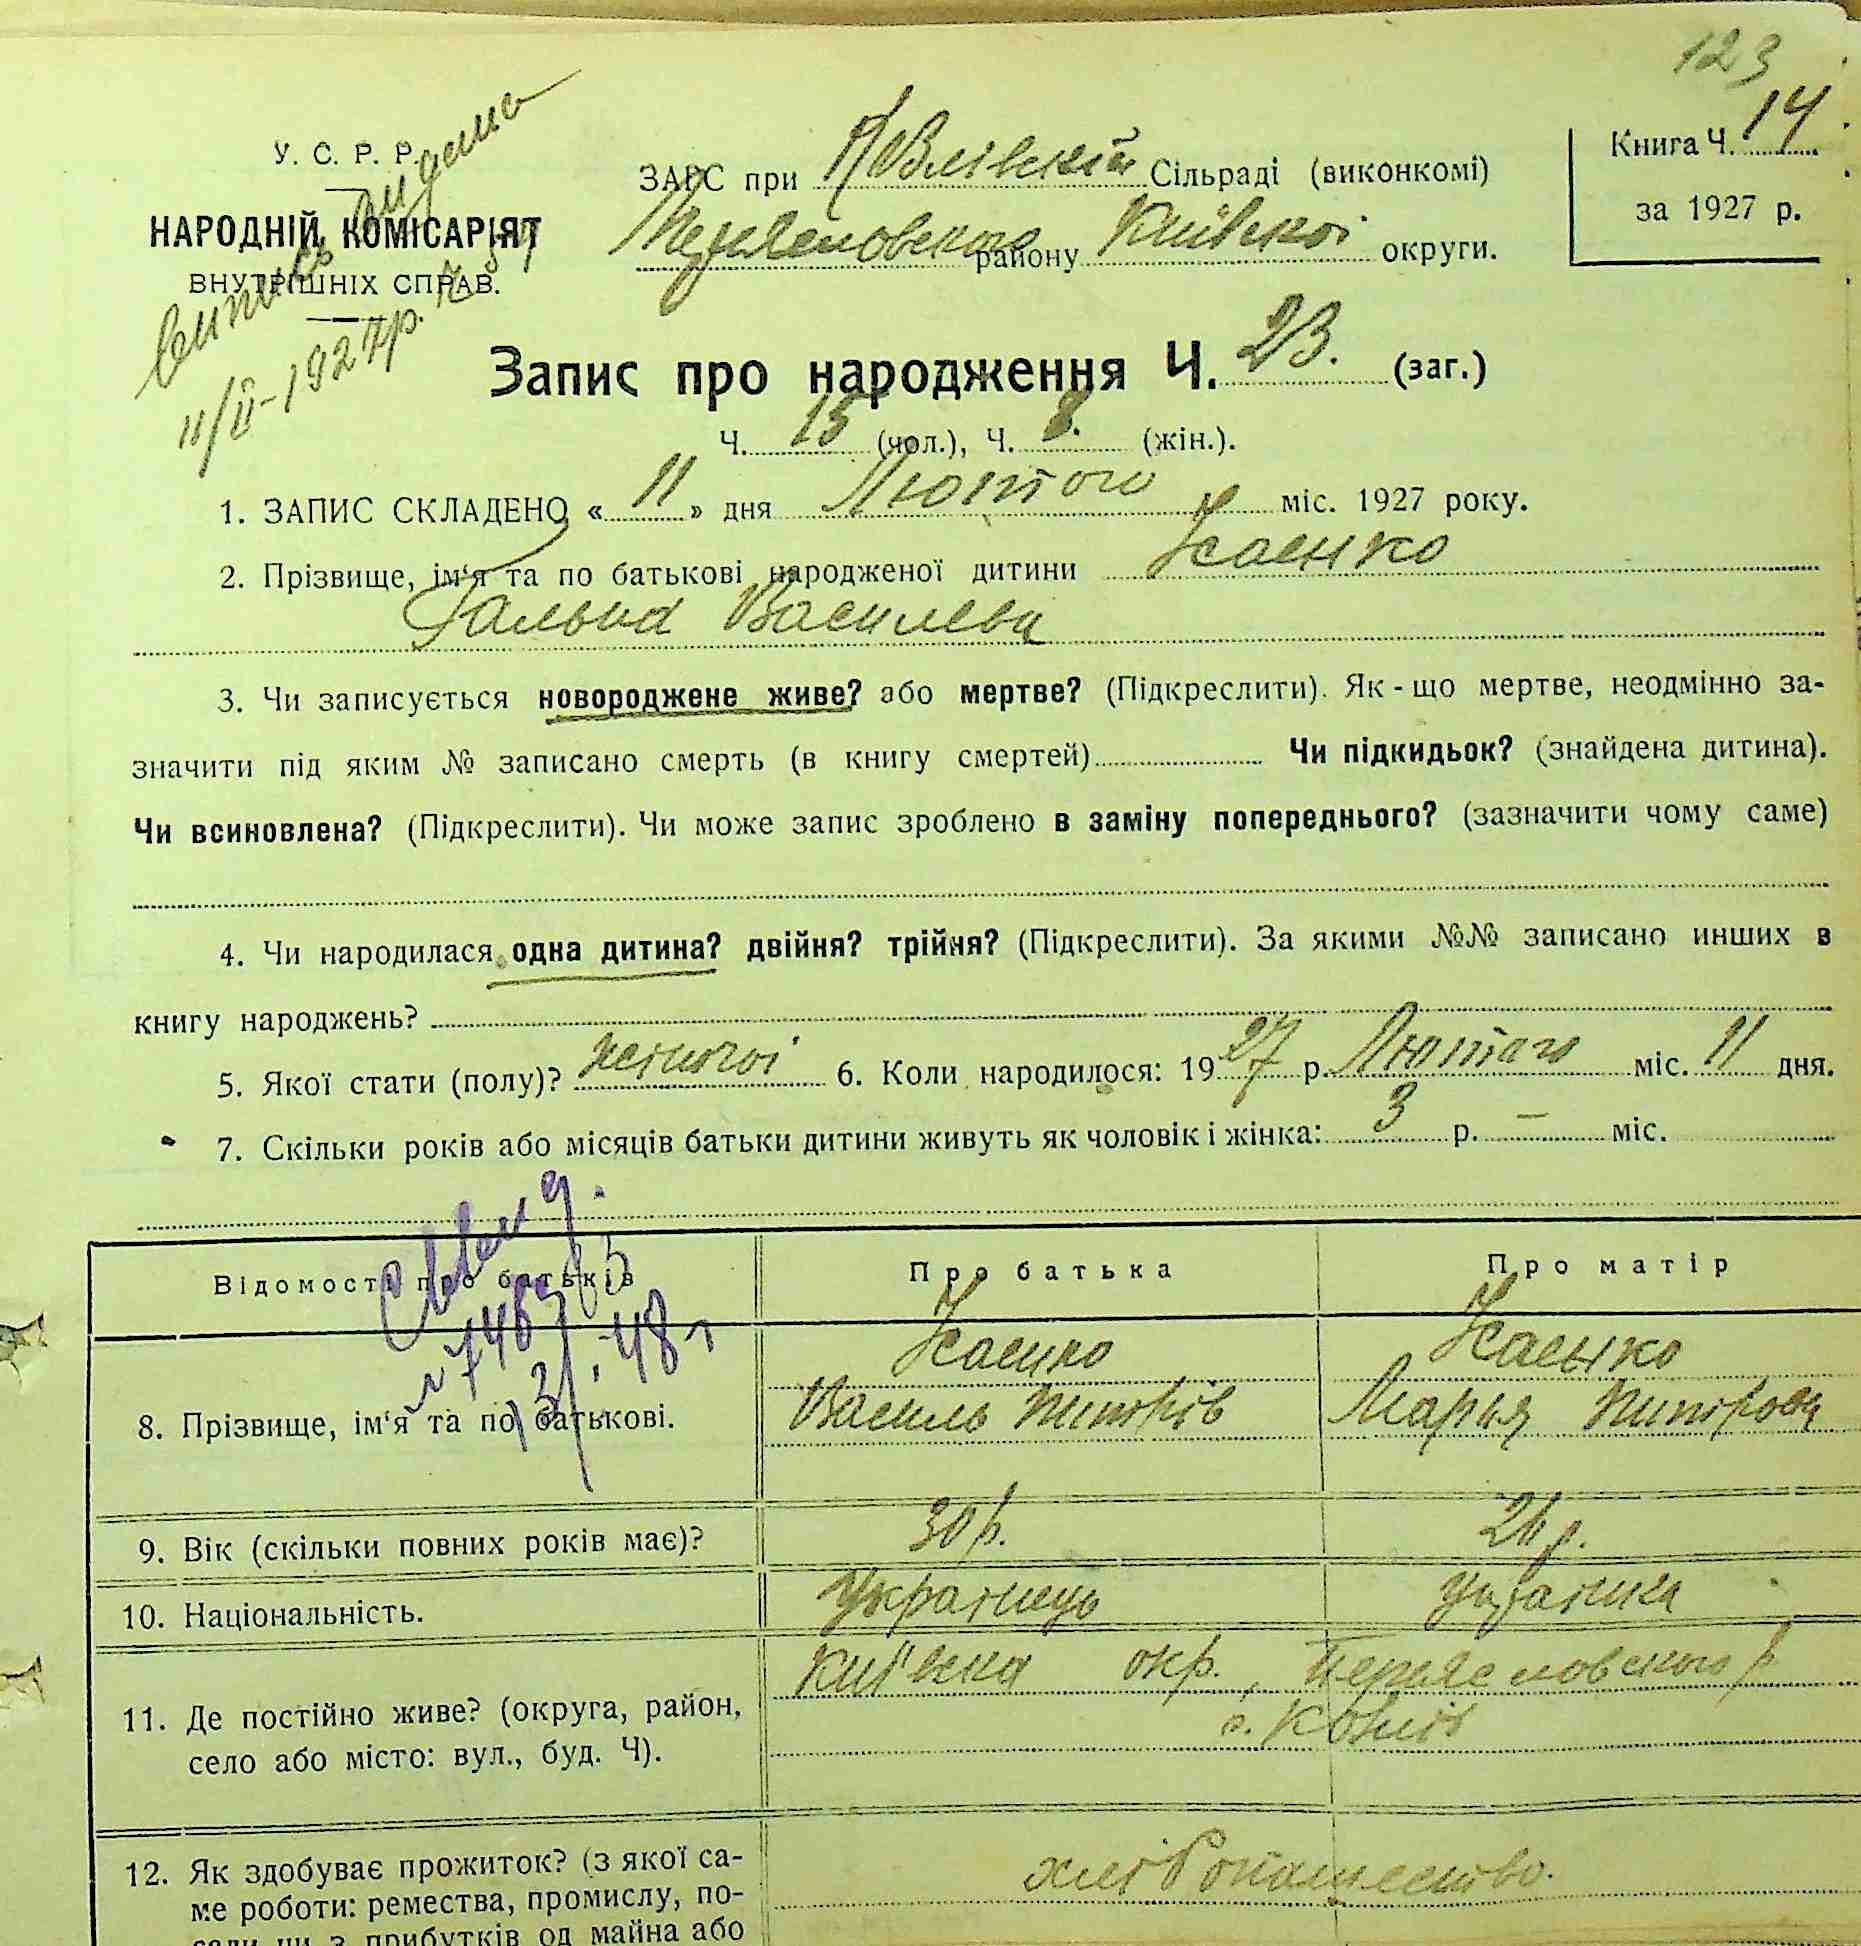 123
У. С. Р. Р.
НАРОДНІЙ КОМІСАРІЯТ
ВНУТРІШНІХ СПРАВ.
видана
11/II-1927р. № 37
ЗАГС при Ковлівській Сільраді (виконкомі)
Переяславського району Київської округи.
Книга Ч. 14
за 1927 р.
Запис про народження Ч. 23. (заг.)
Ч. 15 (чол.), Ч. 8. (жін.).
1. ЗАПИС СКЛАДЕНО « 11 » дня Лютого міс. 1927 року.
2. Прізвище, ім‘я та по батькові народженої дитини Исаенко
Галына Василева
3. Чи записується новороджене живе? або мертве? (Підкреслити). Як-що мертве, неодмінно за-
значити під яким № записано смерть (в книгу смертей) Чи підкидьок? (знайдена дитина).
Чи всиновлена? (Підкреслити). Чи може запис зроблено в заміну попереднього? (зазначити чому саме)
4. Чи народилася одна дитина? двійня? трійня? (Підкреслити). За якими №№ записано инших в
книгу народжень?
5. Якої стати (полу)? жіночоі 6. Коли народилося: 1927 р. Лютого міс. 11 дня.
7. Скільки років або місяців батьки дитини живуть як чоловік і жінка: 3 р. — міс.
Відомості про батьків
Про батька
Про матір
8. Прізвище, ім‘я та по батькові.
Василь
Марья
9. Вік (скільки повних років має)? 30 р.
10. Національність. Українець українка
11. Де постійно живе? (округа, район,
село або місто: вул., буд. Ч).
Київська окр., Переясловского р
с. Ковлів
12. Як здобуває прожиток? (з якої са-
ме роботи: ремества, промислу, по-
сади чи з прибутків од майна або